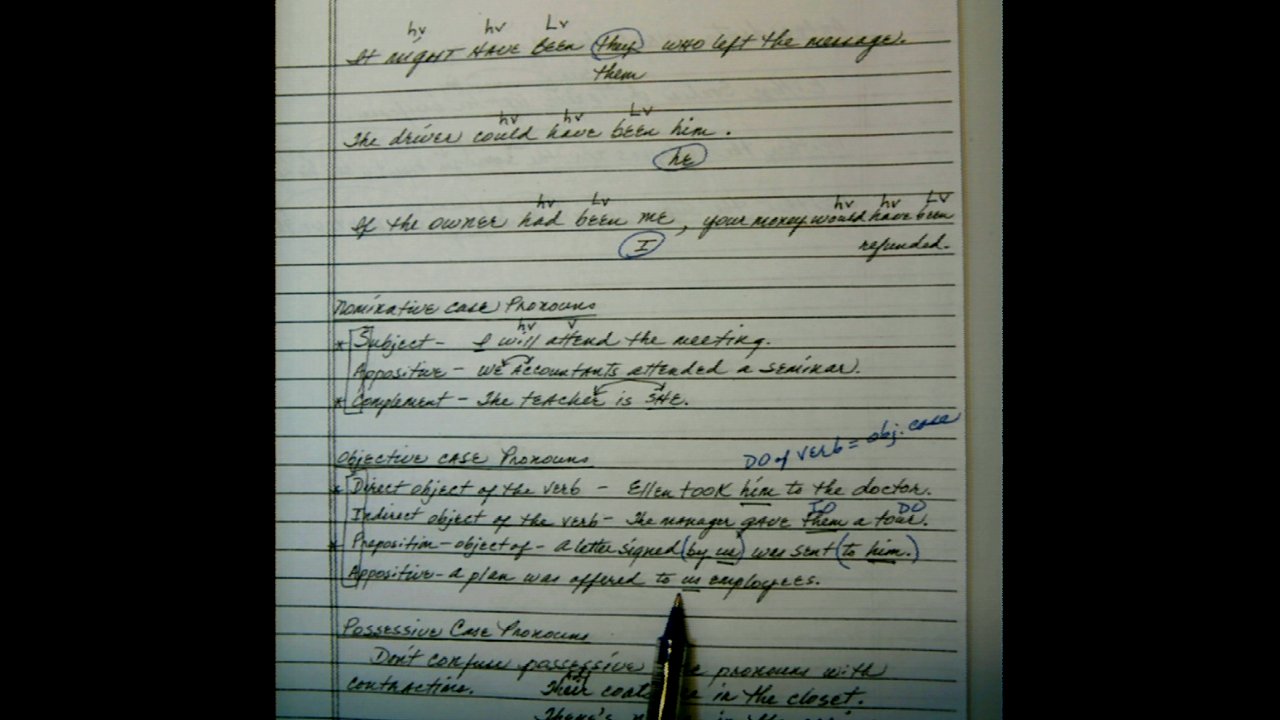 hv hv Lv
It might HAVE BEEN they who left the message.
them
hv hv Lv
The driver could have been him.
hE
hv Lv hv hv Lv
If the owner had been me, your money would have been
I
refunded.
Nominative Case Pronouns
hv v
* Subject - I will attend the meeting.
Appositive - We Accountants attended a seminar.
* Complement - The teacher is SHE.
DO of verb = obj. case
Objective Case Pronouns
* Direct object of the verb - Ellen took him to the doctor.
IO DO
Indirect object of the verb - The manager gave them a tour.
* Preposition - object of - A letter signed (by us) was sent (to him.)
Appositive - A plan was offered to us employees.
Possessive Case Pronouns
Don't confuse possessive pronouns with
contractions. Their in the closet.